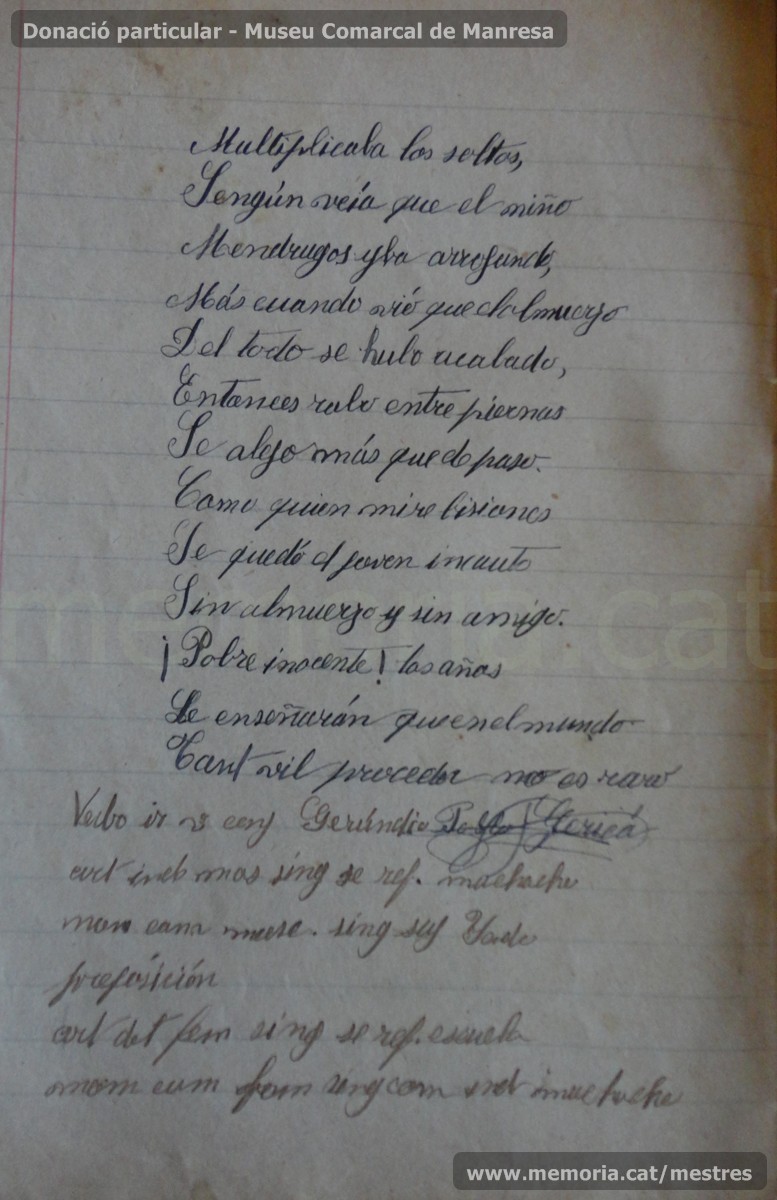 Donació particular - Museu Comarcal de Manresa
Multiplicaba los soltos,
Sengún veía que el niño
Mendrugos yba arrojando,
Más cuando vió que el almuerzo
Del todo se hubo acabado,
Entonces rabo entre piernas
Se alejo más que de paso.
Como quien mire bisiones
Se quedó el joven incauto
Sin almuerzo y sin amigo.
¡Pobre inocente! los años
Le enseñarán que en el mundo
Tant vil proceder no es raro
Verbo ir v conj Gerúndio
art ind mas sing se ref. muchacho
nom com masc. sing suj
preposición
art det fem sing se ref. escuela
nom com fem sing com ind muchacho
memoria.cat
www.memoria.cat/mestres